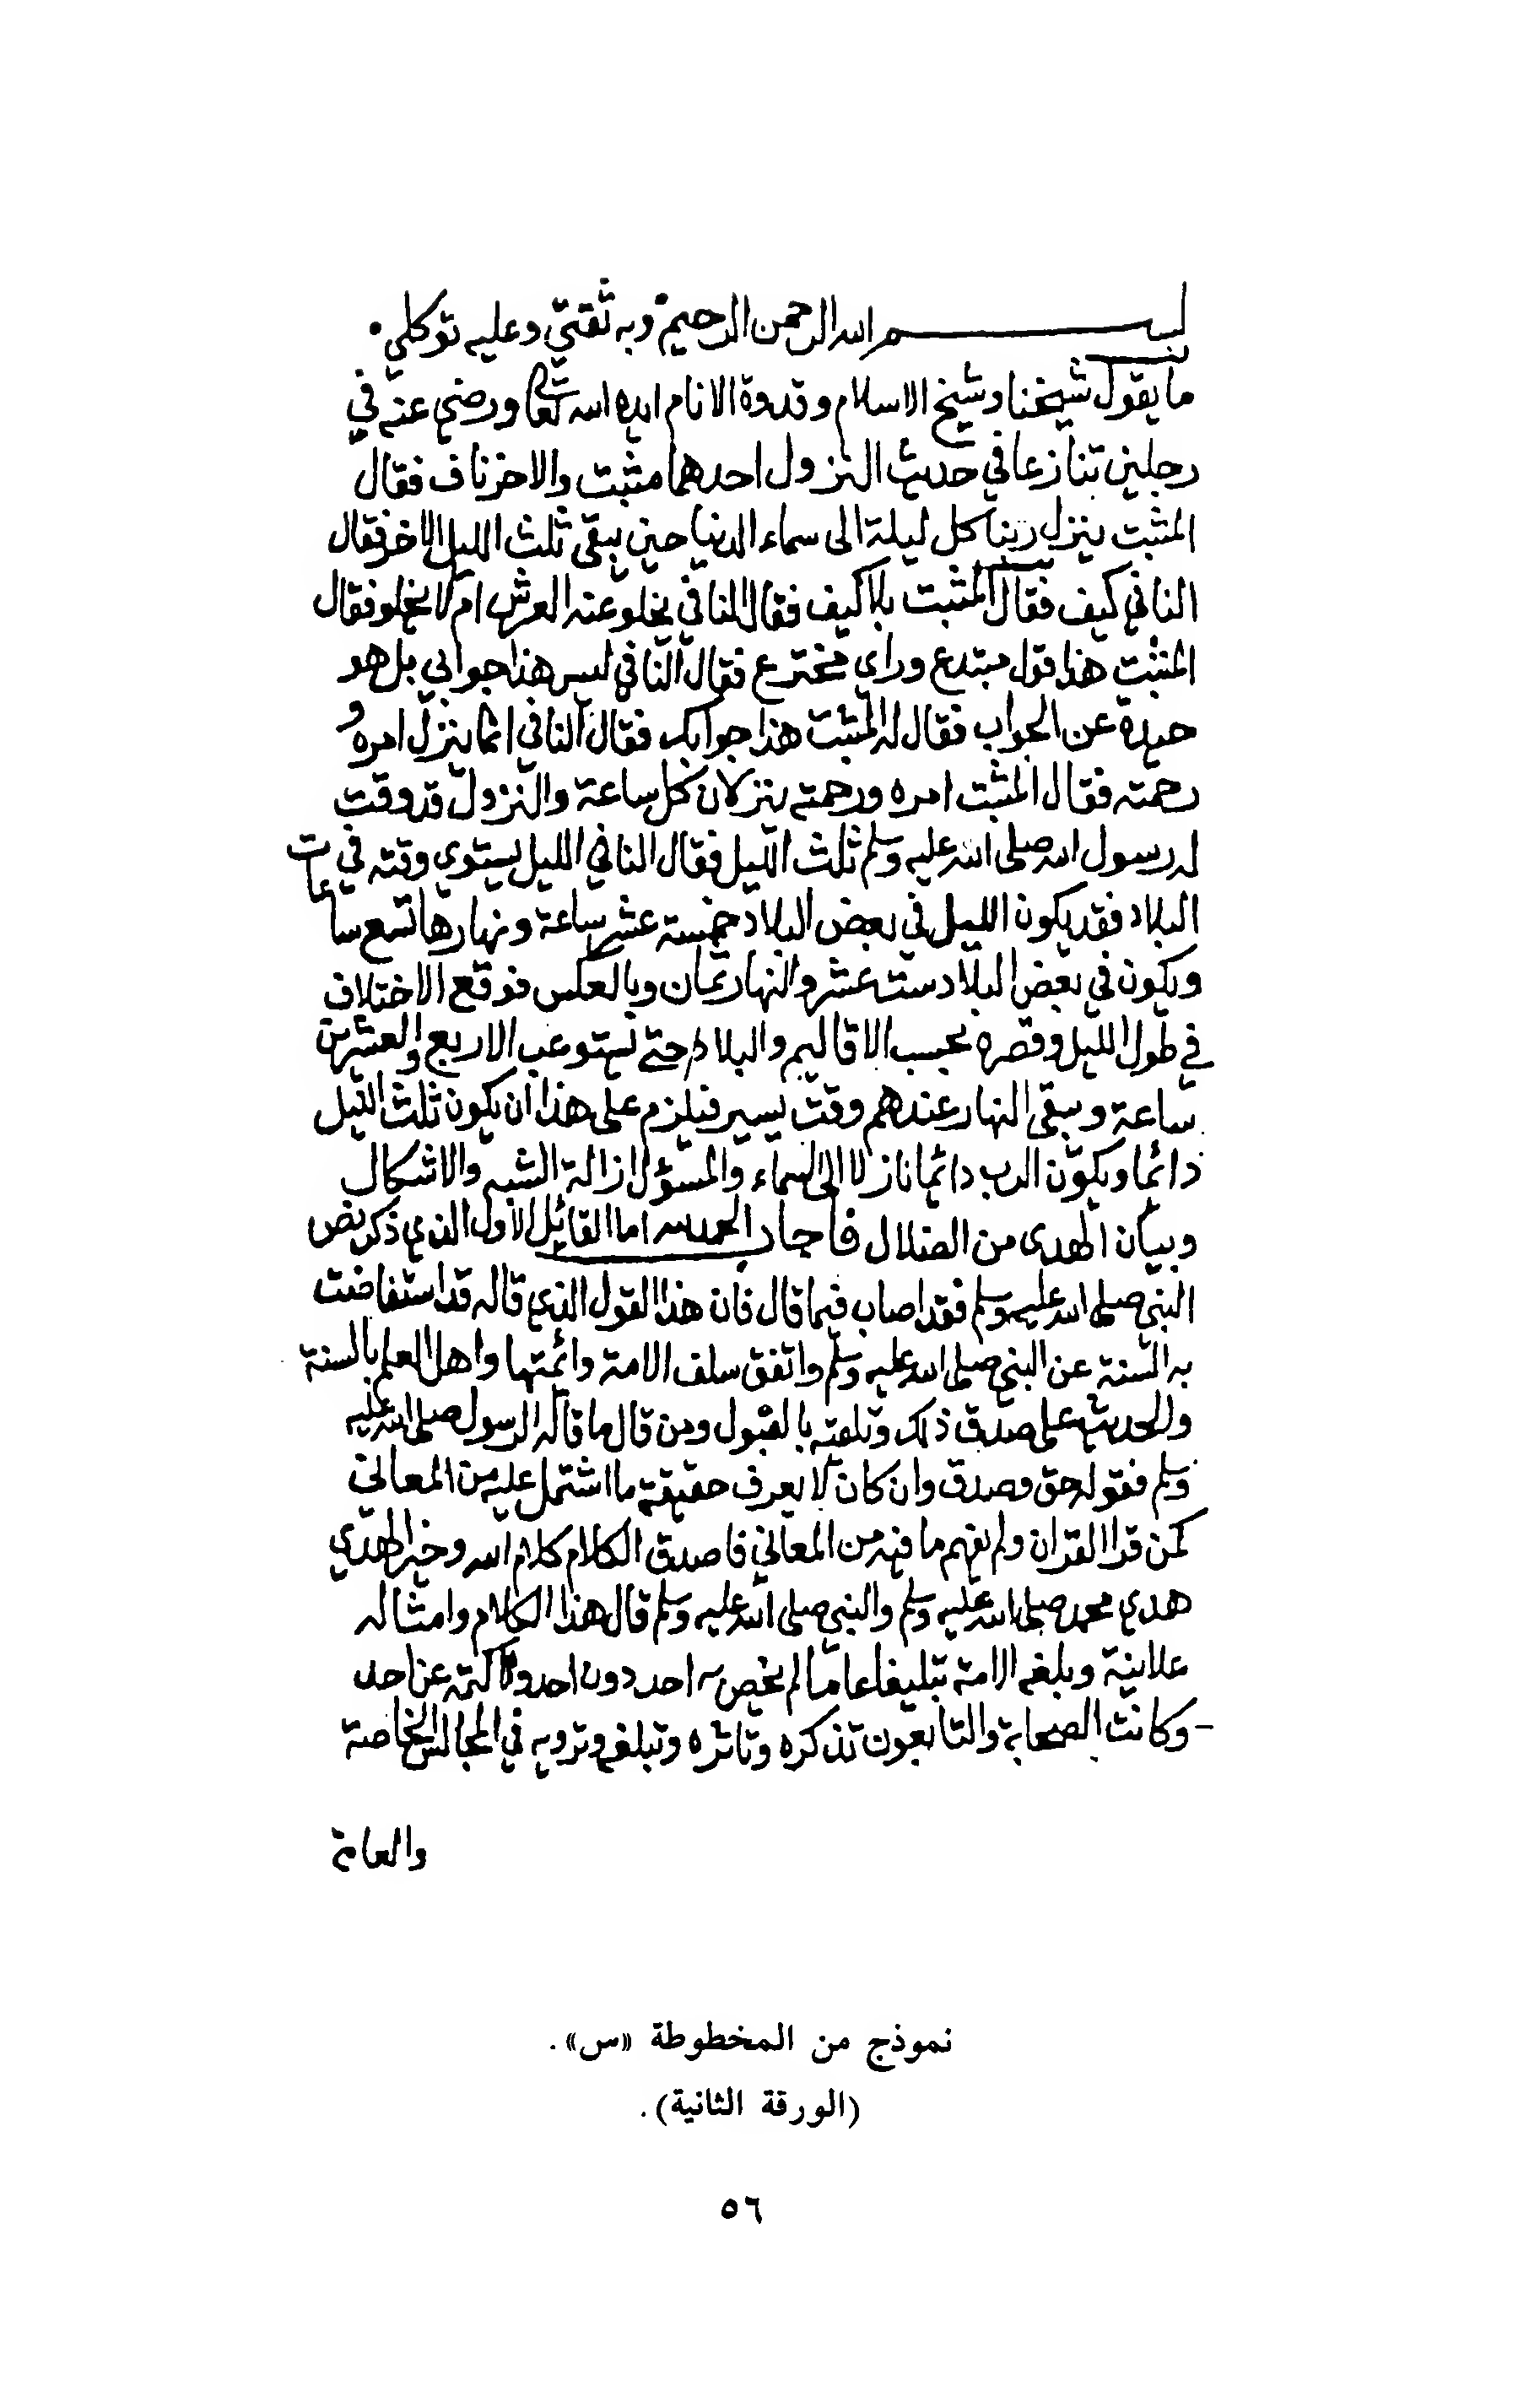 بسم الله الرحمن الرحيم وبه ثقتي وعليه توكلي
ما يقول شيخنا وشيخ الاسلام وقدوة الانام ايده الله تعا ورضي عنه في
رجلين تنازعا في حديث النزول احدهما مثبت والاخر ناف فقال
المثبت ينزل ربنا كل ليلة الى سماء الدنيا حين يبقى ثلث الليل الاخر فقال
النافي كيف فقال المثبت بلا كيف فقال النافي يخلو عنه العرش ام لا يخلو فقال
المثبت هذا قول مبتدع وراي مخترع فقال النافي ليس هذا جوابي بل هو
حيدة عن الجواب فقال له المثبت هذا جوابك فقال النافي انما ينزل امره و
رحمته فقال المثبت امره ورحمته ينزلان كل ساعة والنزول قد وقت
له رسول الله صلى الله عليه وسلم ثلث الليل فقال النافي الليل يستوي وقته في
البلاد فقد يكون الليل في بعض البلاد خمسة عشر ساعة ونهارها تسع ساعات
ويكون في بعض البلاد ست عشر والنهار ثمان وبالعكس فوقع الاختلاف
في طول الليل وقصره بحسب الاقاليم والبلاد حتى يستوعب الاربع والعشرين
ساعة ويبقى النهار عندهم وقت يسير فيلزم على هذا ان يكون ثلث الليل
دائما ويكون الرب دائما نازلا الى السماء والمسؤل ازالة الشبه والاشكال
وبيان الهدى من الضلال فاجاب الحمد لله اما القائل الاول الذي ذكر نص
النبي صلى الله عليه وسلم فقد اصاب فيما قال فان هذا القول الذي قاله قد استفاضت
به السنة عن النبي صلى الله عليه وسلم واتفق سلف الامة وائمتها واهل العلم بالسنة
والحديث على صدق ذلك وتلقته بالقبول ومن قال ما قاله الرسول صلى الله عليه
وسلم فقوله حق وصدق وان كان لا يعرف حقيقة ما اشتمل عليه من المعاني
كمن قرا القران ولم يفهم ما فيه من المعاني فاصدق الكلام كلام الله وخير الهدي
هدي محمد صلى الله عليه وسلم والنبي صلى الله عليه وسلم قال هذا الكلام وامثاله
علانية وبلغه الامة تبليغا عاما لم يخص به احد دون احد ولا كتمه عن احد
- وكانت الصحابة والتابعون تذكره وتاثره وتبلغه وترويه في المجالس الخاصة
والعامة
نموذج من المخطوطة «س».
(الورقة الثانية).
٥٦